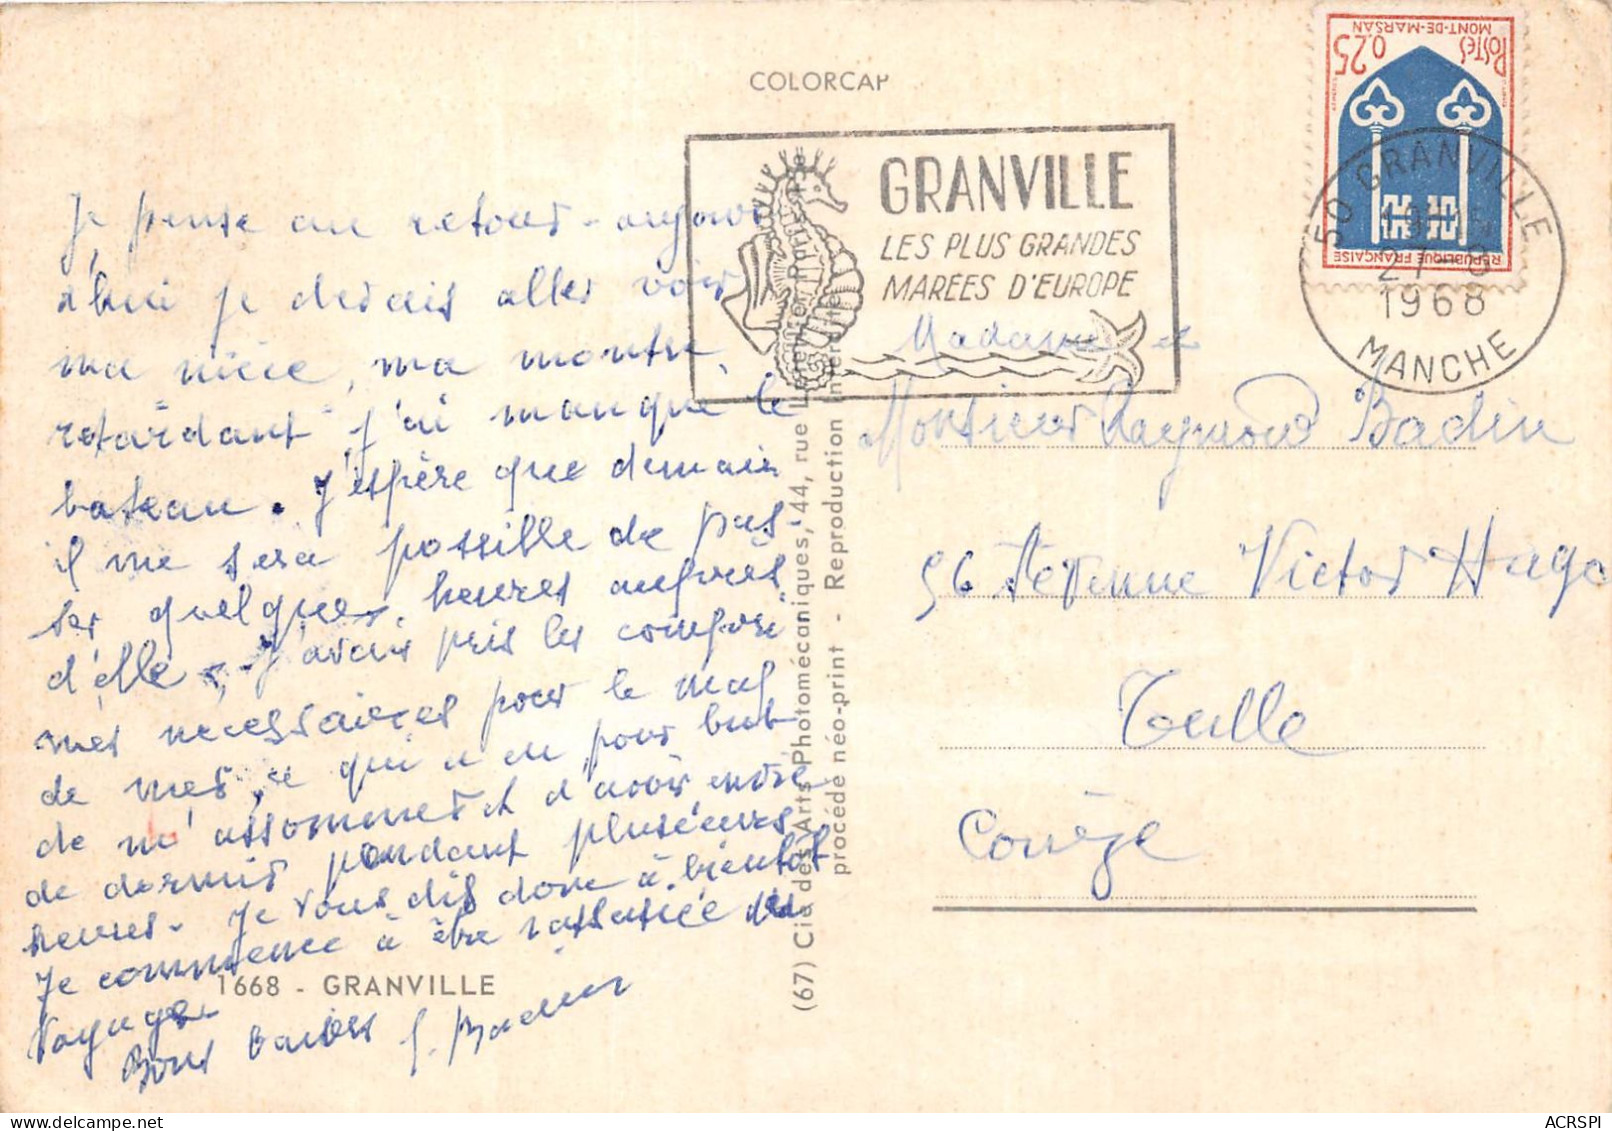 COLORCAP
Je pense au retour - aujour
d'hui je devais aller voir
ma nièce, ma montre
retardant j'ai manqué le
bateau. J'espère que demain
il me sera possible de pas-
ser quelques heures auprès
d'elle. J'avais pris les compri
més nécessaires pour le mal
de mer, ce qui a eu pour but
de m'assommer et d'avoir envie
de dormir pendant plusieurs
heures. Je vous dis donc à bientot
Je commence à être rassasiée de
voyages
Bons baisers G. Badin
1668 - GRANVILLE
(67) Cie des Arts Photomécaniques, 44, rue
procédé néo-print - Reproduction interdite
GRANVILLE
LES PLUS GRANDES
MARÉES D'EUROPE
POSTES 0,25
MONT-DE-MARSAN
RÉPUBLIQUE FRANÇAISE
50 GRANVILLE
1968
MANCHE
Madame et
Monsieur Raymond Badin
56 Avenue Victor Hugo
Tulle
Corrèze
ACRSPI